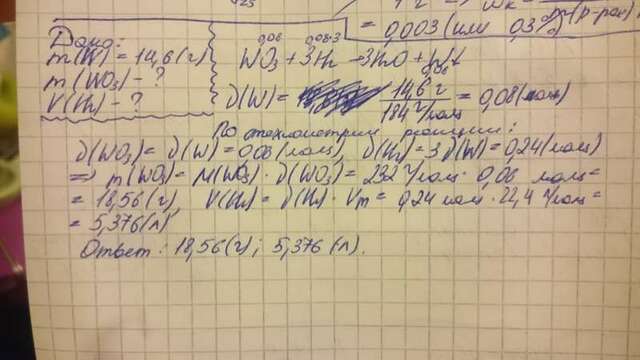 = 0,003 (или 0,3%)
Дано:
m(W) = 14,6 (г)
m(WO3) - ?
V(H2) - ?
0,08 0,08·3
WO3 + 3H2 → 3H2O + W↓
0,08
ν(W) = 14,6 г / 184 г/моль = 0,08 (моль)
По стехиометрии реакции:
ν(WO3) = ν(W) = 0,08 (моль), ν(H2) = 3ν(W) = 0,24 (моль)
=> m(WO3) = M(WO3) · ν(WO3) = 232 г/моль · 0,08 моль =
= 18,56 (г), V(H2) = ν(H2) · Vm = 0,24 моль · 22,4 л/моль =
= 5,376 (л)
Ответ: 18,56 (г); 5,376 (л).